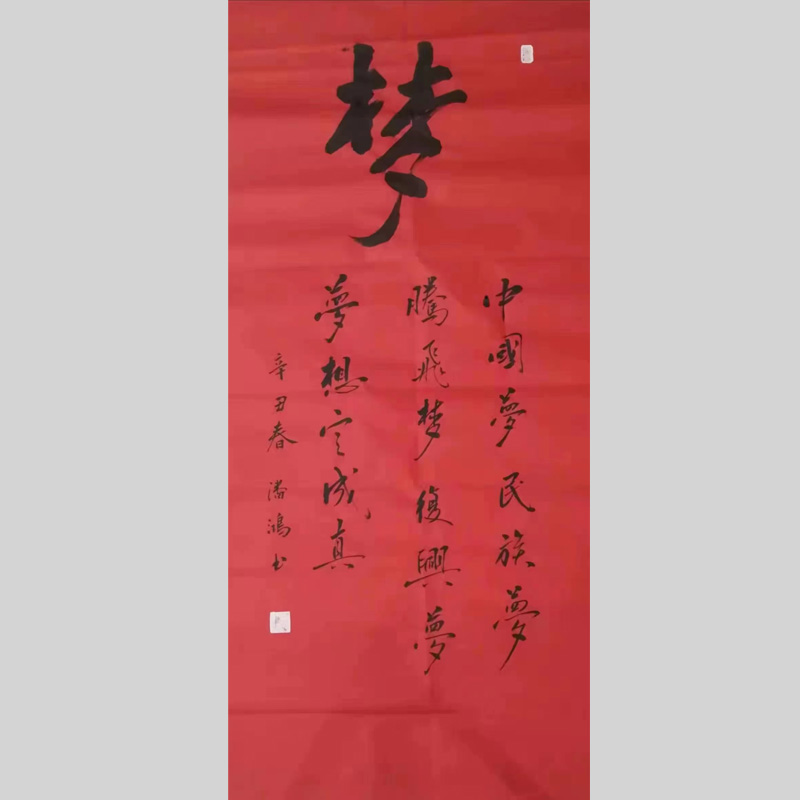 梦
中國夢民族夢
騰飛梦復興夢
夢想定成真
辛丑春潘鴻书